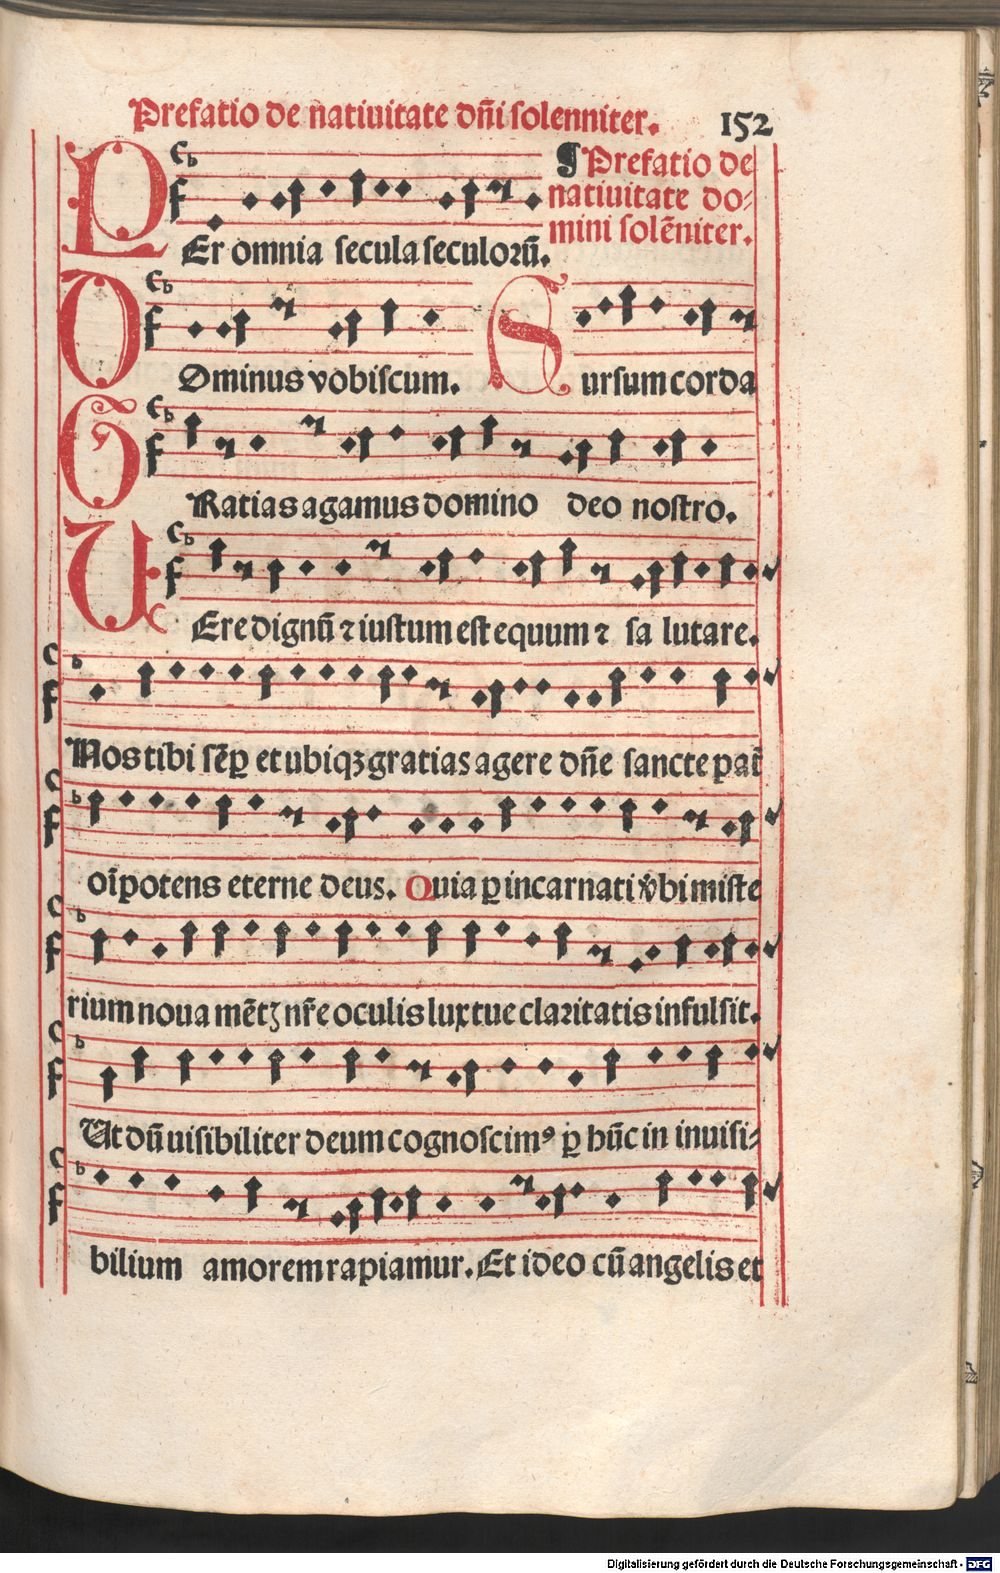 Prefatio de natiuitate dn̄i solenniter. 152
¶ Prefatio de
natiuitate do⸗
mini solēniter.
PEr omnia secula seculoꝝū.
DOminus vobiscum. Sursum corda
GRatias agamus domino deo nostro.
UEre dignū ⁊ iustum est equum ⁊ sa lutare.
Nos tibi sēꝑ et ubiqꝫ gratias agere dn̄e sancte pat̄
oīpotens eterne deus. Quia ꝑ incarnati v̄bi miste
rium noua mētꝫ nr̄e oculis lux tue claꝛitatis infulsit.
Ut dū uisibiliter deum cognoscimꝰ ꝑ hūc in inuisi⸗
bilium amorem rapiamur. Et ideo cū angelis et
Digitalisierung gefördert durch die Deutsche Forschungsgemeinschaft - DFG